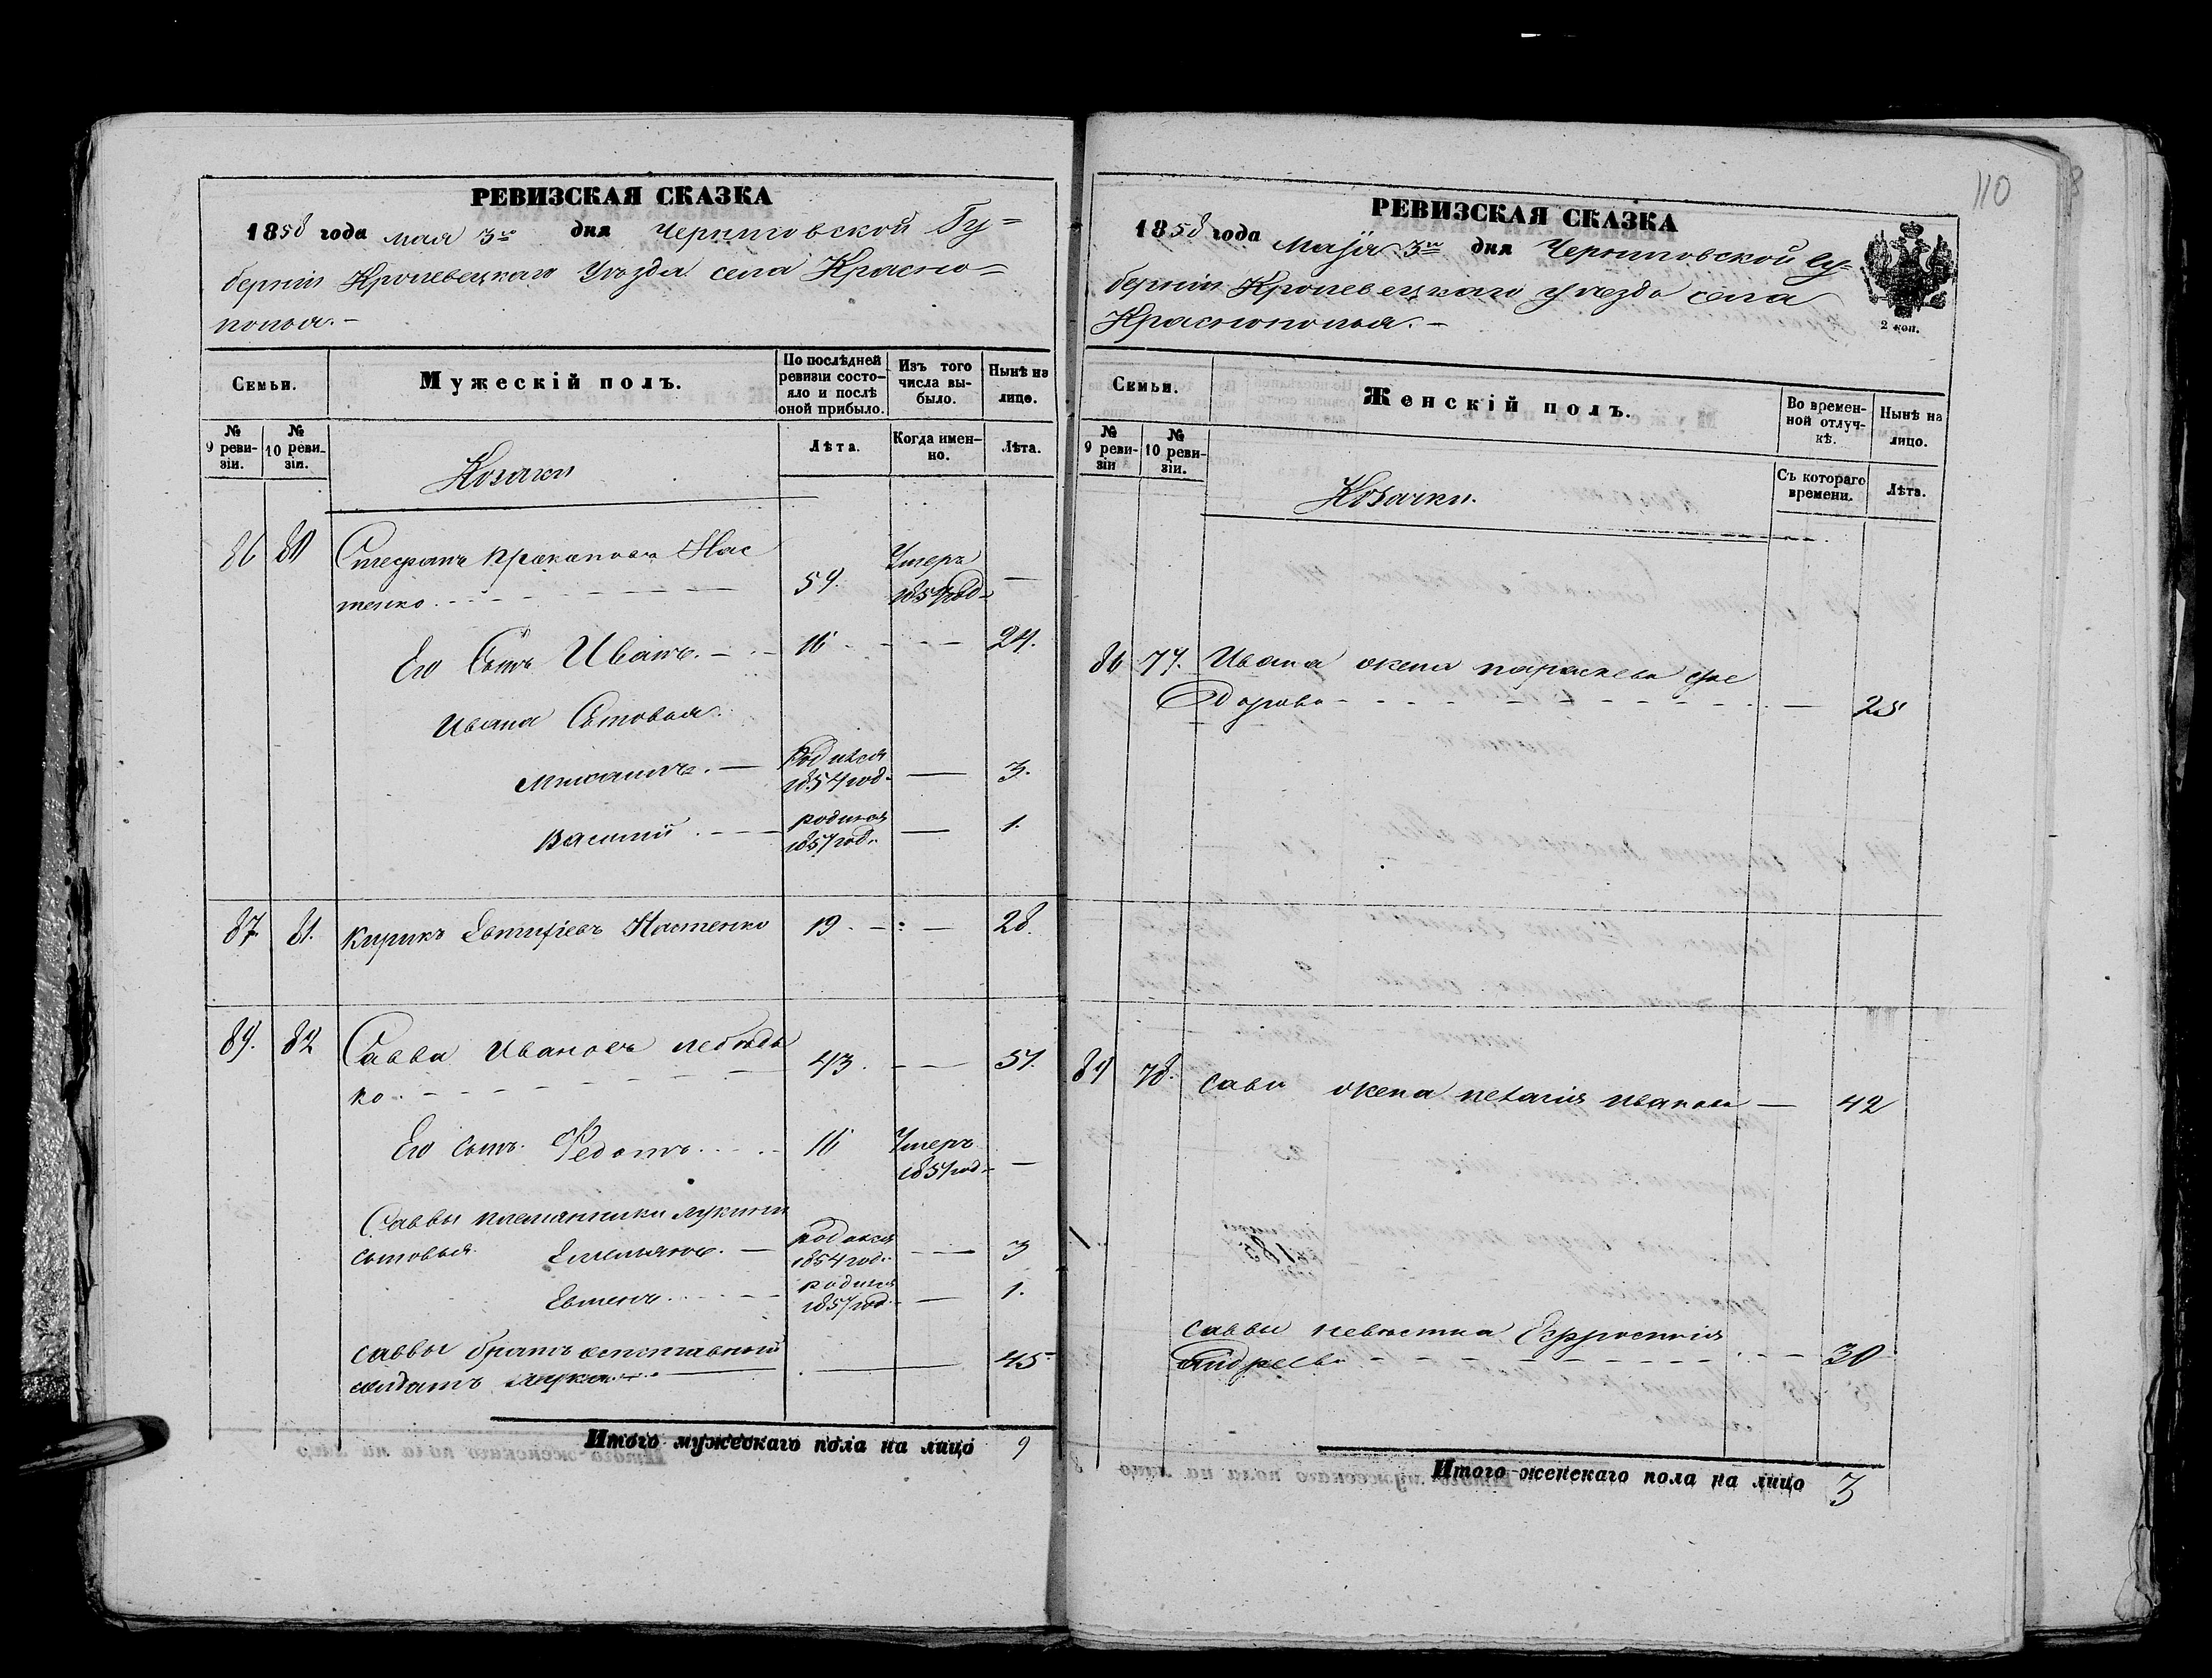 РЕВИЗСКАЯ СКАЗКА
1858 года мая 3го дня Черниговской Гу=
берніи Кролевецкаго Уѣзда села Красно=
полья.-
Семьи.
Мужескій полъ.
По послѣдней ревизіи состо-яло и послѣ оной прибыло.
Изъ того числа вы-было.
Нынѣ на лицо.
№ 9 реви-зіи.
№ 10 реви-зіи.
Козаки
Лѣта.
Когда имен-но.
Лѣта.
86 80 Стефанъ Нас
тенко 59. Умеръ —
Его Сынъ Иванъ. 16 24.
Ивана Сыновья.
Родился 1854 год. — 3.
Василий родился 1857 год. — 1.
87 81. Кирикъ Евтифіевъ Настенко 19. 28.
89. 82 Савва Ивановъ Лебѣдь
ко 43. 51.
Его сынъ Федотъ 16 Умеръ —
Саввы племянники Лукини
сыновья Емельянъ. родился 1854 год. 3
родился 1857 год. — 1.
Саввы братъ отставный 45
солдатъ Лука
Итого мужескаго пола на лицо 9
110
РЕВИЗСКАЯ СКАЗКА
1858 года Маія 3го дня Черниговской Гу=
берніи Кролевецкаго уѣзда села
Краснополья.-
2 коп.
Семьи.
Женскій полъ.
Во времен-ной отлуч-кѣ.
Нынѣ на лицо.
№ 9 реви-зіи
№ 10 реви-зіи.
Козачки.
Съ котораго времени.
Лѣта.
86 77. Ивана жена Параскева Фе
дорова 25
89 78. Савы жена Пелагия Иванова — 42
Саввы невѣстка Ефросинія
Андреева 30
Итого женскаго пола на лицо 3